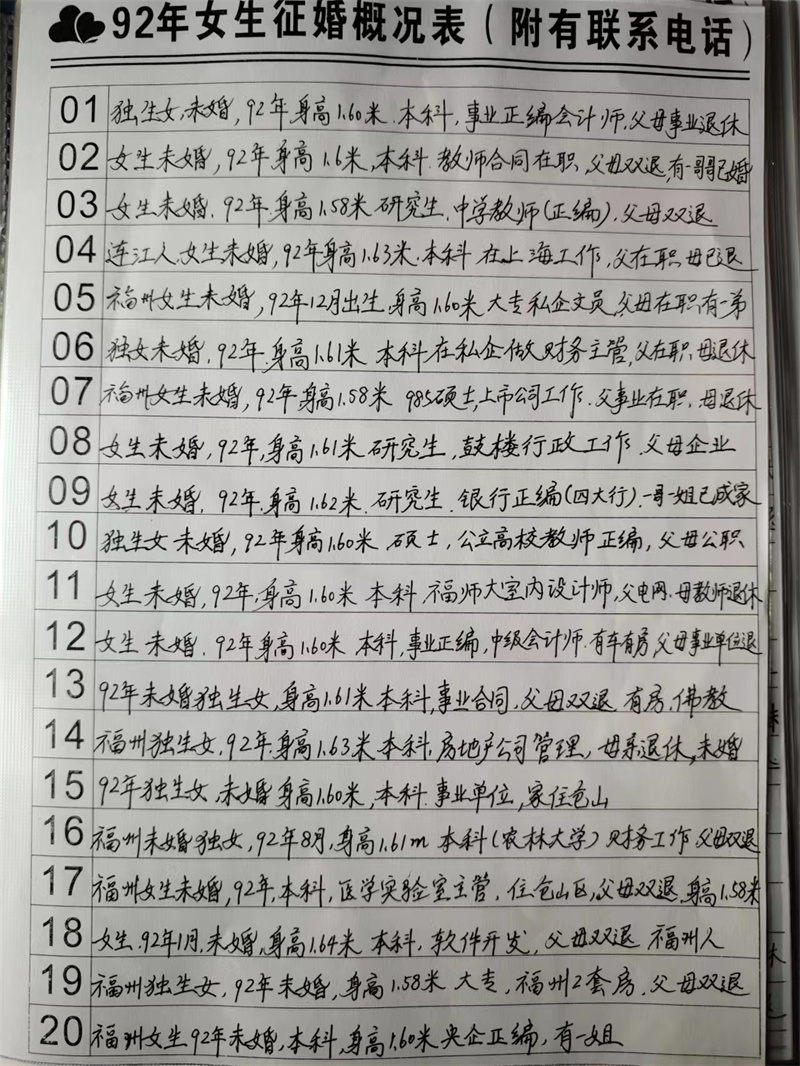 92年女生征婚概况表（附有联系电话）
01 独生女,未婚,92年,身高1.60米.本科,事业正编会计师,父母事业退休
02 女生未婚,92年,身高1.6米,本科.教师合同在职,父母双退,有一哥已婚
03 女生未婚.92年,身高1.58米 研究生.中学教师(正编).父母双退
04 连江人.女生未婚,92年.身高1.63米.本科 在上海工作,父在职.母已退
05 福州女生未婚,92年12月出生,身高1.60米 大专私企文员,父母在职有一弟
06 独女未婚.92年.身高1.61米 本科在私企做财务主管,父在职.母退休
07 福州女生未婚,92年.身高1.58米 985硕士,上市公司工作.父事业在职.母退休
08 女生未婚,92年,身高1.61米 研究生,鼓楼行政工作.父母企业
09 女生未婚.92年.身高1.62米.研究生.银行正编(四大行).一哥一姐已成家
10 独生女 未婚,92年身高1.60米 硕士,公立高校教师正编,父母公职
11 女生未婚,92年,身高1.60米 本科.福师大室内设计师,父电网.母教师退休
12 女生未婚.92年.身高1.60米 本科,事业正编,中级会计师.有车有房,父母事业单位退
13 92年未婚独生女,身高1.61米本科,事业合同.父母双退 有房.佛教
14 福州独生女,92年,身高1.63米 本科.房地产公司管理,母亲退休,未婚
15 92年独生女,未婚身高1.60米,本科.事业单位,家住仓山
16 福州未婚独女,92年8月,身高1.61m 本科(农林大学)财务工作.父母双退
17 福州女生未婚,92年,本科,医学实验室主管,住仓山区,父母双退,身高1.58米
18 女生.92年1月,未婚,身高1.64米 本科,软件开发,父母双退 福州人
19 福州独生女,92年未婚,身高1.58米 大专,福州2套房.父母双退
20 福州女生92年未婚,本科,身高1.60米央企正编,有一姐